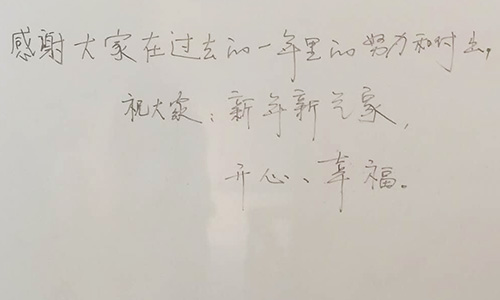 感谢大家在过去的一年里的努力和付出,
祝大家:新年新气象,
开心、幸福。